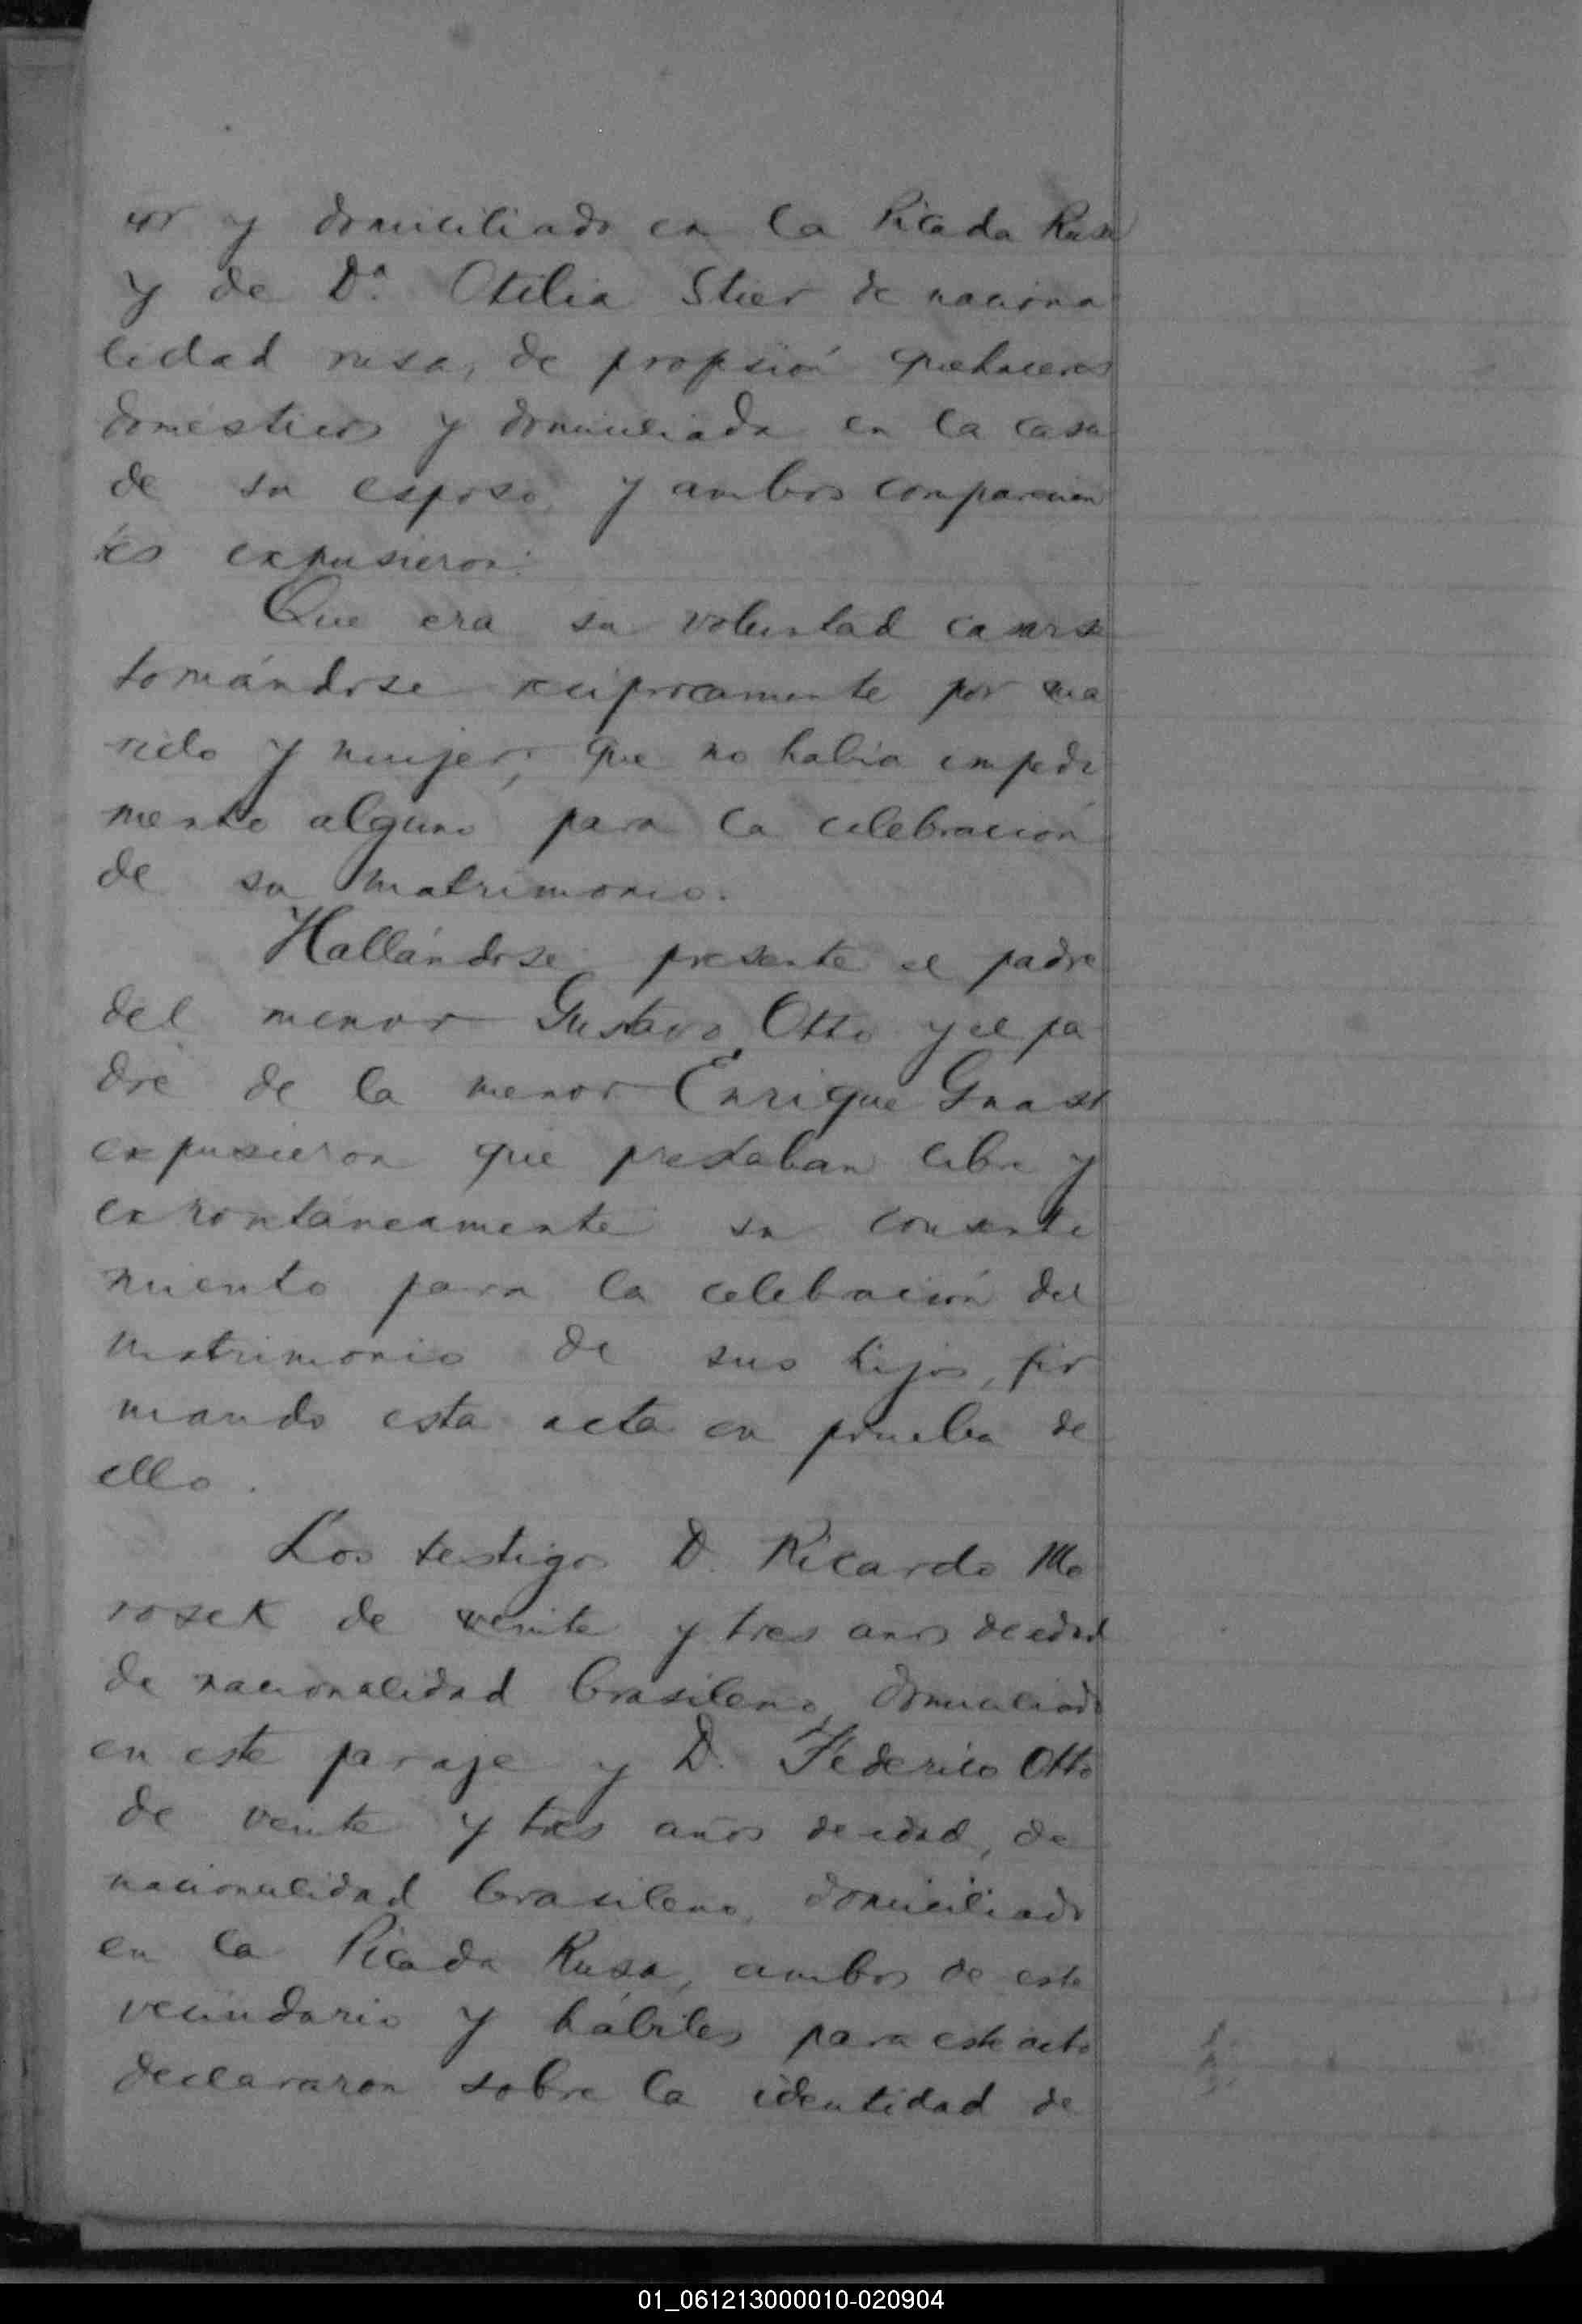 tor y domiciliado en la Picada Rusa
y de Da. Otilia Stier de naciona
lidad rusa, de profesión quehaceres
domésticos y domiciliada en la casa
de su esposo, y ambos comparecien
tes expusieron:
Que era su voluntad casarse
tomándose recíprocamente por ma
rido y mujer; que no había impedi
mento alguno para la celebración
de su matrimonio.
Hallándose presente el padre
del menor Gustavo Otto y el pa
dre de la menor Enrique Gnast
expusieron que prestaban libre y
espontáneamente su consenti
miento para la celebración del
matrimonio de sus hijos, fir
mando esta acta en prueba de
ello.
Los testigos D. Ricardo Mo
rosek de veinte y tres anos de edad
de nacionalidad brasileno, domiciliado
en este paraje y D. Federico Otto
de veinte y tres años de edad, de
nacionalidad brasileno, domiciliado
en la Picada Rusa, ambos de este
vecindario y hábiles para este acto
declararon sobre la identidad de
01_061213000010-020904